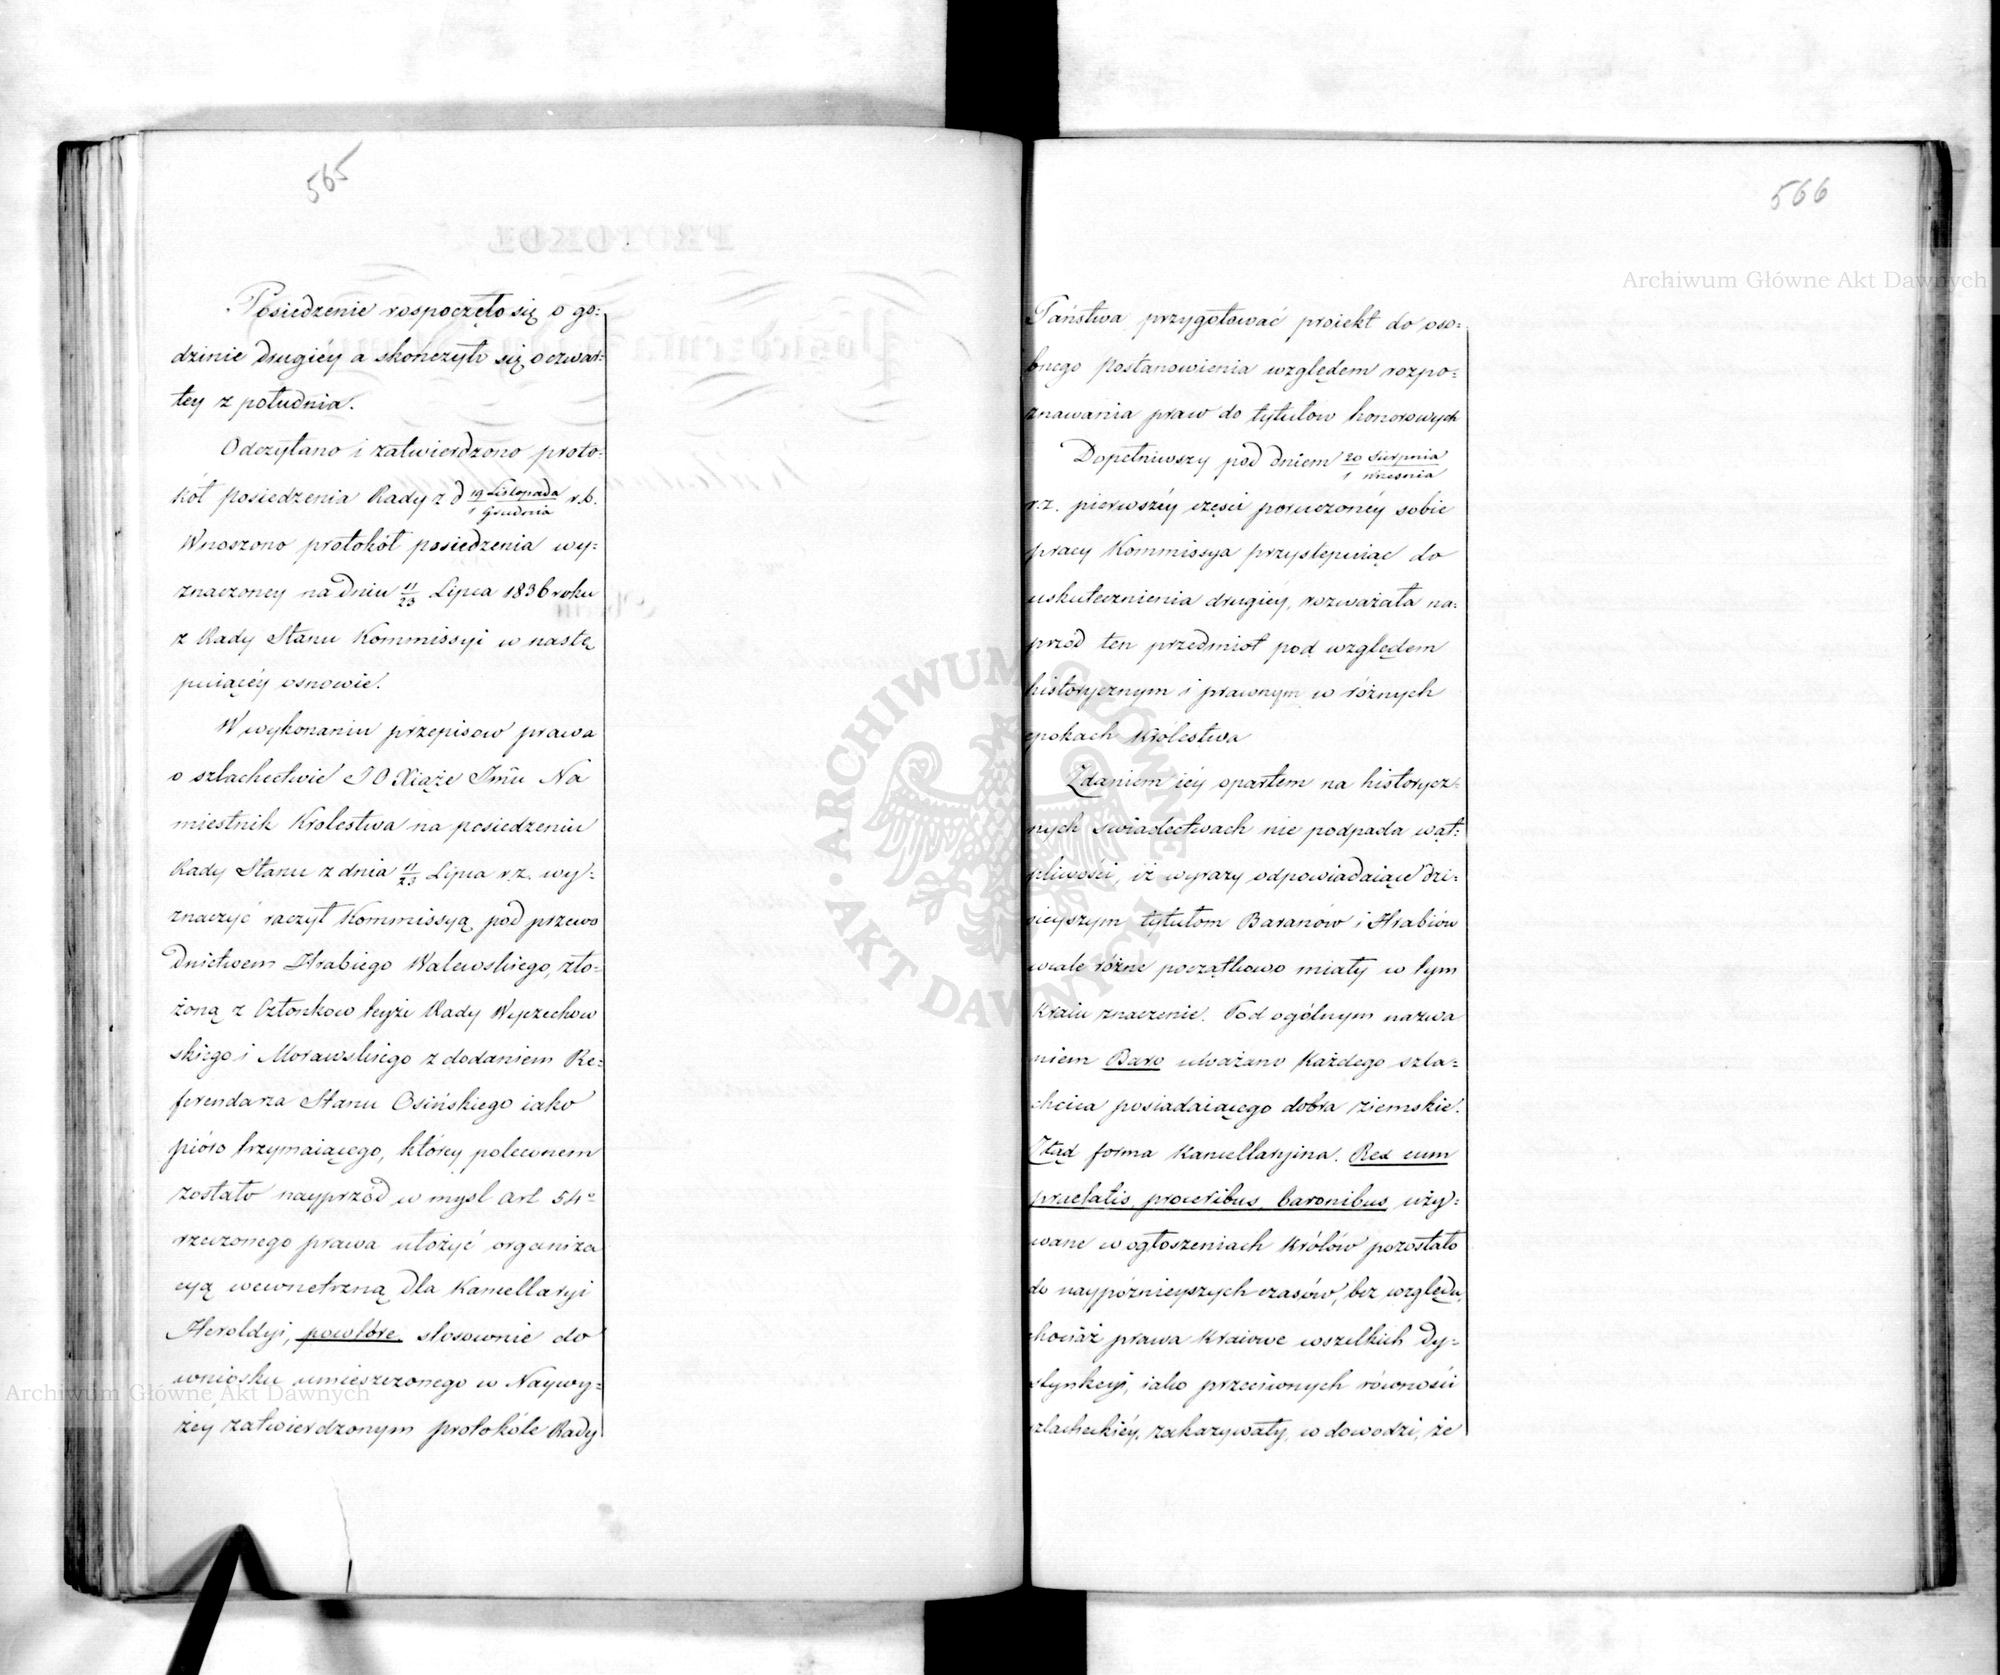 565
Posiedzenie rospoczęło się o go=
dzinie drugiey a skończyło się o czwar=
tey z południa.
Odczytano i zatwierdzono proto=
kół posiedzenia Rady z d 19 Listopada / 1 Grudnia r.b.
Wnoszono protokół posiedzenia wy=
znaczoney na dniu 11/23 Lipca 1836 roku
z Rady Stanu Kommissyi w nastę
puiącéy osnowie.
W wykonaniu przepisow prawa
o szlachectwie JO Xiąże Jmć Na
miestnik Krolestwa na posiedzeniu
Rady Stanu z dnia 11/23 Lipca r.z. wy=
znaczyć raczył Kommissyą pod przewo
dnictwem Hrabiego Walewskiego, zło=
żoną z Członkow teyże Rady Wyczechow
skiego i Morawskiego z dodaniem Re=
ferendarza Stanu Osińskiego iako
pióro trzymaiącego, którey polecenem
zostało nayprzód w mysl art 54º
rzeczonego prawa ułożyć organiza
cyą wewnetrzną dla Kancellaryi
Heroldyi, powtóre stosownie do
wniosku umieszczonego w Naywy=
żéy zatwierdzonym protokóle Rady
566
Państwa przygotować proiekt do oso=
bnego postanowienia względem rozpo=
znawania praw do tytułow honorowych
Dopełniwszy pod dniem 20 Sierpnia / 1 Wrzesnia
r.z. pierwszéy części poruczonéy sobie
pracy Kommissya przystepuiąc do
uskutecznienia drugiéy, rozważała na=
przód ten przedmiot pod względem
historycznym i prawnym w różnych
epokach Królestwa
Zdaniem iéy opartem na historycz=
nych swiadectwach nie podpada wąt=
pliwości, iż wyrazy odpowiadaiące dzi=
sieyszym tytułom Baranów i Hrabiów
wcale różne początkowo miały w tym
Kraiu znaczenie. Pod ogólnym nazwa
niem Baro uważano każdego szla=
chcica posiadaiącego dobra ziemskie.
Ztąd forma Kancellaryina. Rex cum
praelatis, proceribus, baronibus, uży=
wane w ogłoszeniach Królów pozostało
do naypóznieyszych czasów, bez względu,
chociaż prawa Kraiowe wszelkich dy=
stynkcyi, iako przeciwnych równości
szlacheckiéy, zakazywały, w dowodzi, że
Archiwum Główne Akt Dawnych
Archiwum Główne Akt Dawnych
ARCHIWUM GŁÓWNE · AKT DAWNYCH ·